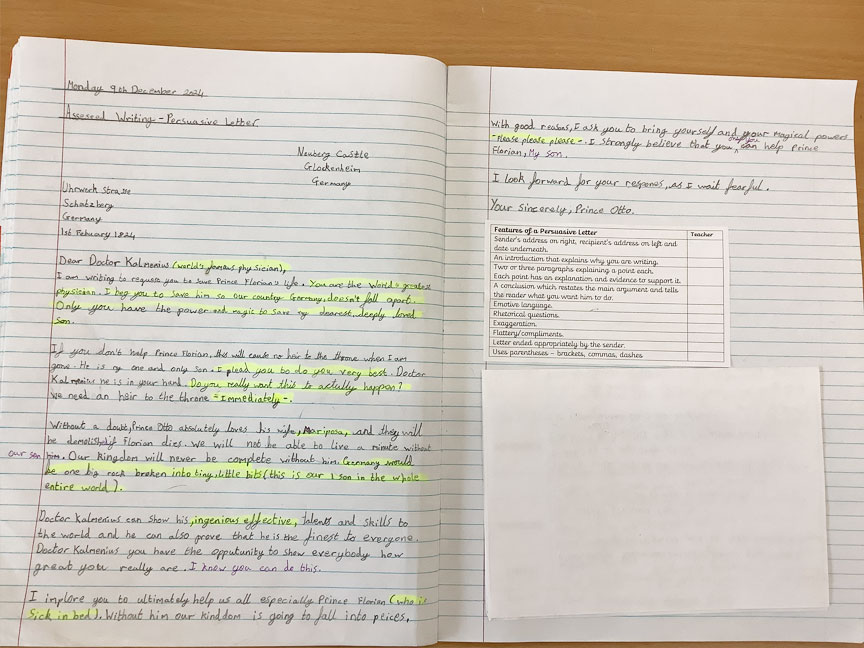 Monday 9th December 2024
Assessed Writing - Persuasive Letter
Neuberg Castle
Glockenheim
Germany
Uhrwerk Strasse
Schatzberg
Germany
1st February 1824
Dear Doctor Kalmenius (world's famous physician),
I am writing to request you to save Prince Florian's life. You are the World's greatest
physician. I beg you to save him so our country Germany, doesn't fall apart.
Only you have the power and magic to save my dearest, deeply loved
son.
If you don't help Prince Florian, this will cause no hair to the throne when I am
gone. He is my one and only son. I plead you to do you very best. Doctor
Kalmenius he is in your hand. Do you really want this to actally happen?
We need an hair to the throne - Immediately -.
Without a doubt, Prince Otto absolutely loves his wife, Mariposa, and they will
be demolish if Florian dies. We will not be able to live a minute without
our son him. Our Kingdom will never be complete without him. Germany would
be one big rock broken into tiny, little bits (this is our 1 son in the whole
entire world).
Doctor Kalmenius can show his, ingenious effective, talents and skills to
the world and he can also prove that he is the finest to everyone.
Doctor Kalmenius you have the oppunity to show everybody how
great you really are. I know you can do this.
I implore you to ultimately help us all especially Prince Florian (who is
sick in bed). Without him our kinddom is going to fall into peices,
With good reasons, I ask you to bring yourself and your magical powers
- Please please please -. I strongly believe that you can help Prince
Florian, My son.
I look forward for your respones, as I wait fearful.
Your Sincerely, Prince Otto.
Features of a Persuasive Letter Teacher
Sender's address on right, recipient's address on left and
date underneath.
An introduction that explains why you are writing.
Two or three paragraphs explaining a point each.
Each point has an explanation and evidence to support it.
A conclusion which restates the main argument and tells
the reader what you want him to do.
Emotive language.
Rhetorical questions.
Exaggeration.
Flattery/compliments.
Letter ended appropriately by the sender.
Uses parentheses - brackets, commas, dashes